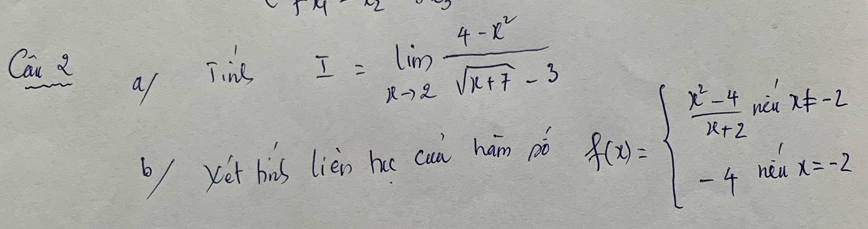 Câu 2 a/ Tính I = lim x→2 (4 - x²)/(√(x+7) - 3)
b/ Xét tính liên tục của hàm số f(x) = { (x² - 4)/(x + 2) nếu x ≠ -2
- 4 nếu x = -2